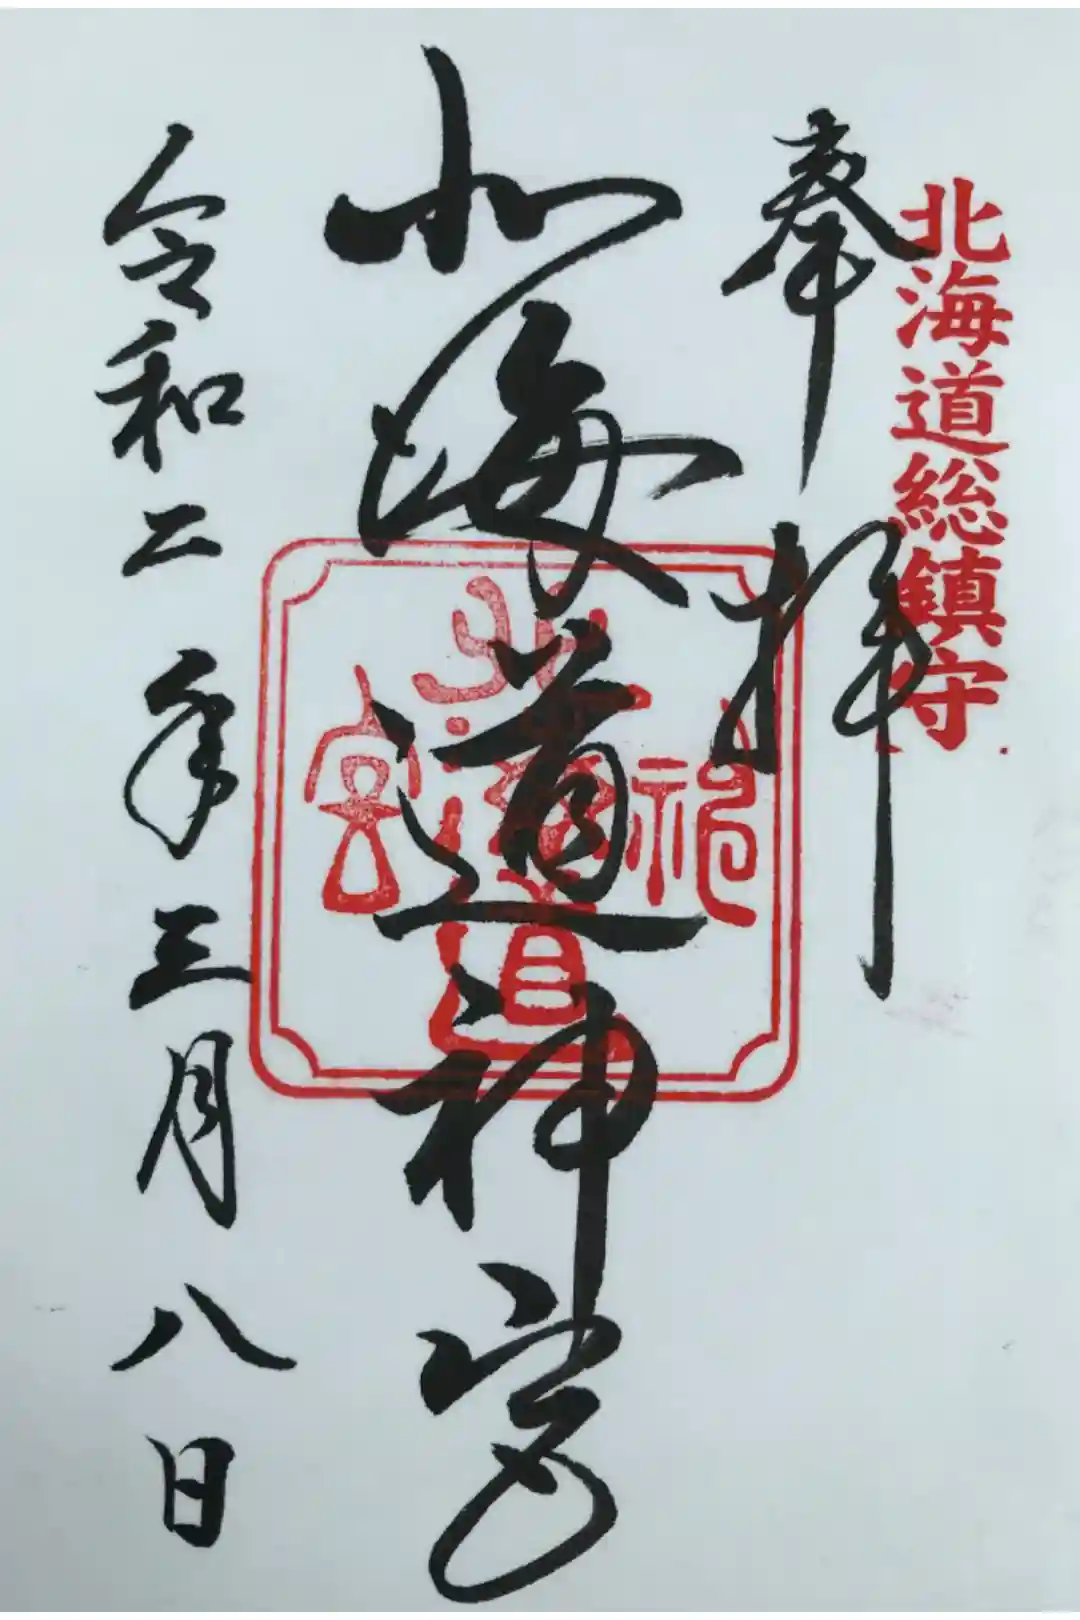 北海道総鎮守
奉拝
北海道神宮
北海道神宮
令和二年三月八日